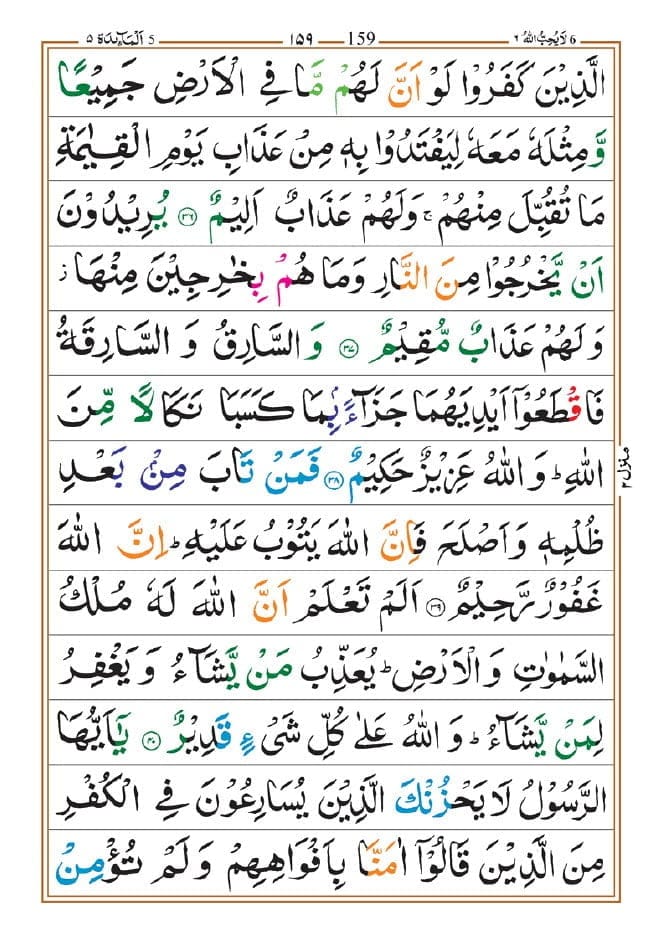 6 لَا يُحِبُّ اللّٰهُ ٦ 159 ١٥٩ 5 اَلْمَآئِدَة ٥
الَّذِيْنَ كَفَرُوْا لَوْ اَنَّ لَهُمْ مَّا فِي الْاَرْضِ جَمِيْعًا
وَّمِثْلَهٗ مَعَهٗ لِيَفْتَدُوْا بِهٖ مِنْ عَذَابِ يَوْمِ الْقِيٰمَةِ
مَا تُقُبِّلَ مِنْهُمْ ۚ وَلَهُمْ عَذَابٌ اَلِيْمٌ ۝٣٦ يُرِيْدُوْنَ
اَنْ يَّخْرُجُوْا مِنَ النَّارِ وَمَا هُمْ بِخٰرِجِيْنَ مِنْهَا ز
وَلَهُمْ عَذَابٌ مُّقِيْمٌ ۝٣٧ وَالسَّارِقُ وَ السَّارِقَةُ
فَاقْطَعُوْٓا اَيْدِيَهُمَا جَزَآءًۢ بِمَا كَسَبَا نَكَالًا مِّنَ
اللّٰهِ ؕ وَ اللّٰهُ عَزِيْزٌ حَكِيْمٌ ۝٣٨ فَمَنْ تَابَ مِنْۢ بَعْدِ
ظُلْمِهٖ وَاَصْلَحَ فَاِنَّ اللّٰهَ يَتُوْبُ عَلَيْهِ ؕ اِنَّ اللّٰهَ
غَفُوْرٌ رَّحِيْمٌ ۝٣٩ اَلَمْ تَعْلَمْ اَنَّ اللّٰهَ لَهٗ مُلْكُ
السَّمٰوٰتِ وَالْاَرْضِ ؕ يُعَذِّبُ مَنْ يَّشَآءُ وَ يَغْفِرُ
لِمَنْ يَّشَآءُ ؕ وَ اللّٰهُ عَلٰى كُلِّ شَيْءٍ قَدِيْرٌ ۝٤٠ يٰٓاَيُّهَا
الرَّسُوْلُ لَا يَحْزُنْكَ الَّذِيْنَ يُسَارِعُوْنَ فِي الْكُفْرِ
مِنَ الَّذِيْنَ قَالُوْٓا اٰمَنَّا بِاَفْوَاهِهِمْ وَلَمْ تُؤْمِنْ
منزل ٢